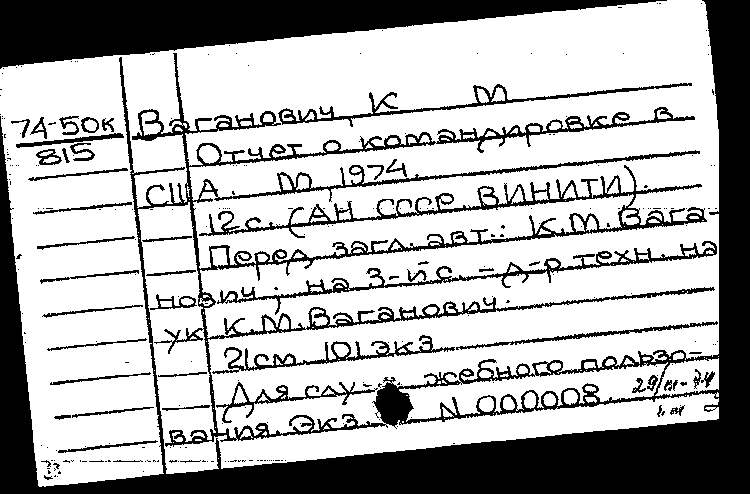 74-50к
815
Ваганович, К М
Отчет о командировке в
США. М, 1974.
12с. (АН СССР. ВИНИТИ).
Перед загл. авт.: К.М.Вага-
нович; на 3-й с. - д-р техн. на
ук К.М.Ваганович.
21см. 101экз
Для слу- жебного пользо-
вания. Экз. N 000008.